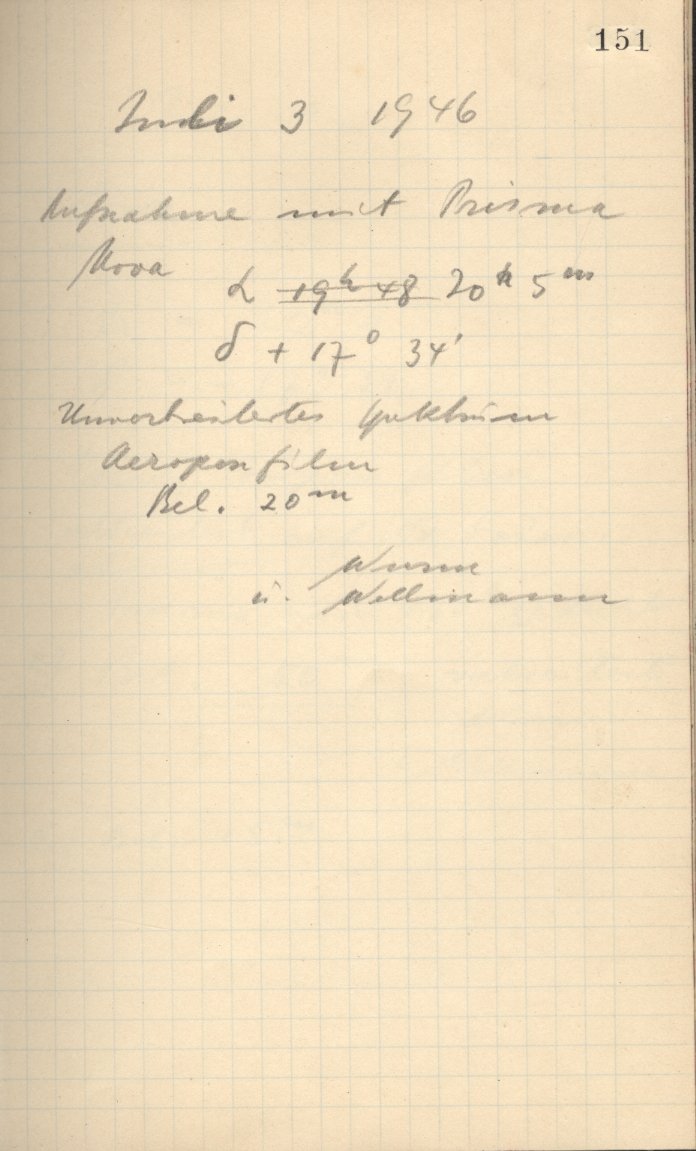 151
Juli 3 1946
Aufnahme mit Prisma
Nova
α 19h 48 20h 5m
δ + 17° 34'
Unverbreitertes Spektrum
Aeropanfilm
Bel. 20m
Wurm
u. Wellmann